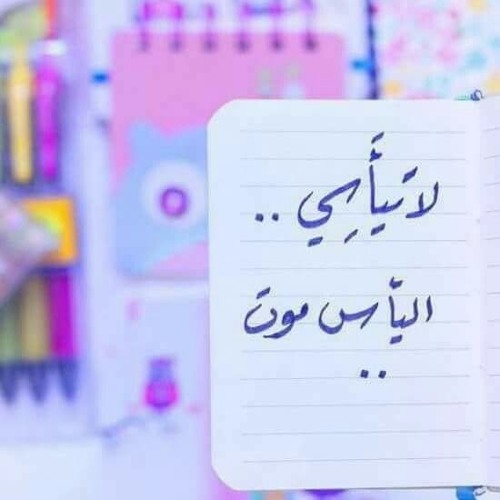 لا تَيأَسِي ..
اليأس موت
..